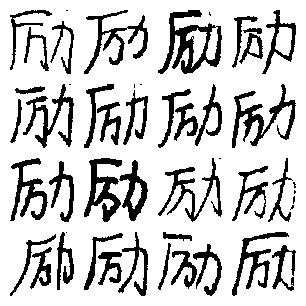 励励励励
励励励励
励励励励
励励励励